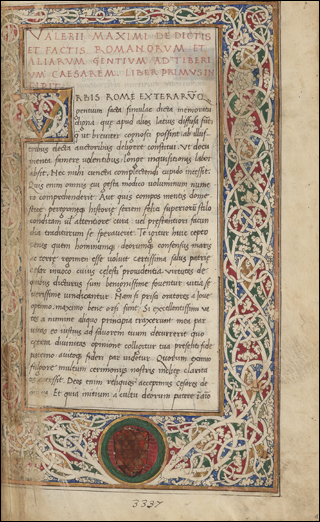 VALERII MAXIMI DE DICTIS
ET FACTIS ROMANORUM ET
ALIARUM GENTIUM AD TIBERI
UM CAESAREM. LIBER PRIMUS IN
VRBIS ROME EXTERARUM
gentium facta simul ac dicta memoratu
digna que apud alios latius diffusa sunt
ut breviter cognosci possint ab illus
tribus electa auctoribus deligere constitui. Ut docu
menta sumere volentibus longe inquisitionis labor
absit. Nec mihi cuncta complectendi cupido incessit.
Quis enim omnis evi gesta modico voluminum nume
ro comprehenderit. Aut quis compos mentis dome
stice peregrineque historie seriem felici superiorum stilo
conditam vel attentiore cura vel prestantiori facun
dia traditurum se speraverit. Te igitur huic cepto
penes quem hominum deorumque consensus maris
ac terre regimen esse voluit certissima salus patrie
cesar invoco cuius celesti providentia virtutes de
quibus dicturus sum benignissime foventur vitia se
verissime vindicantur. Nam si prisci oratores a Jove
optimo maximo bene orsi sunt. Si excellentissimi va
tes a numine aliquo principia traxerunt mea par
vitas eo iustius ad favorem tuum decurrerit quo
cetera divinitas opinione colligitur tua presenti fide
paterno avitoque sideri par videtur. Quorum eximio
fulgore multum cerimoniis nostris inclite clarita
tis accessit. Deos enim reliquos accepimus cesares de
dimus. Et quia initium a cultu deorum petere
3337